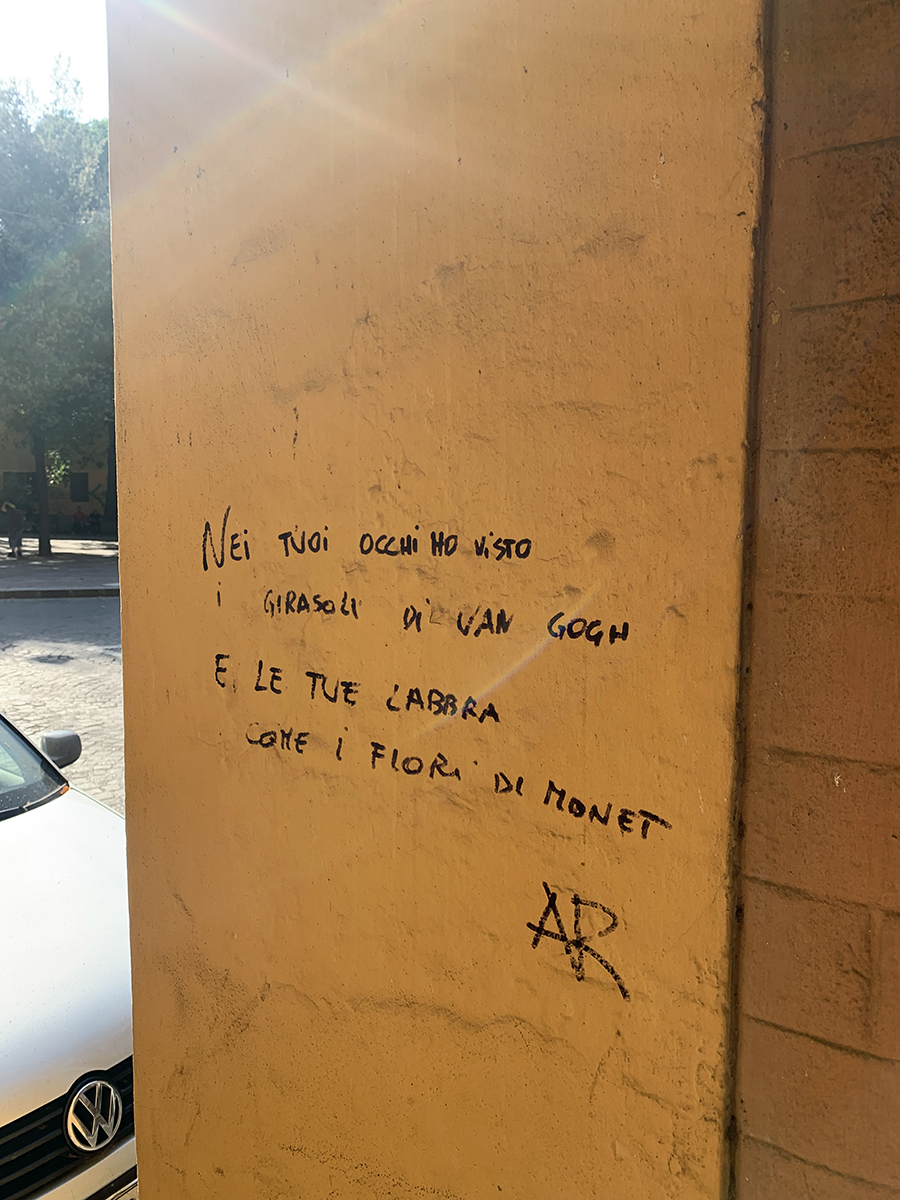 NEi TUOI OCCHI HO VISTO
i GIRASOLI DI VAN GOGH
E LE TUE LABBRA
COME i FIORI DI MONET
AR